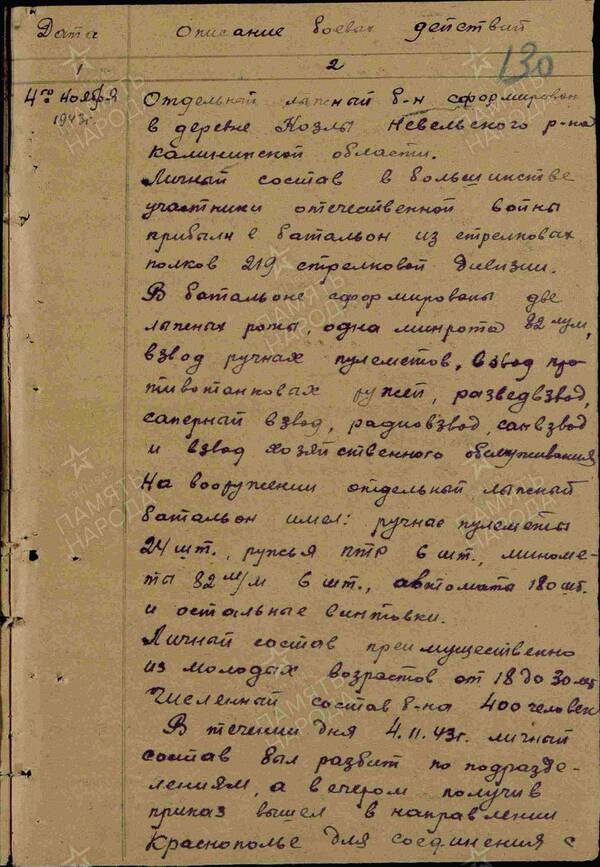 Дата Описание боевых действий
130
1 2
4го ноября 1943г.
Отдельный лыжный б-н сформирован
в деревне Козлы Невельского р-на
Калининской области.
Личный состав в большинстве
участники отечественной войны
прибыли в батальон из стрелковых
полков 219 стрелковой дивизии.
В батальоне сформированы две
лыжных роты, одна минрота 82 м/м,
взвод ручных пулеметов, взвод про-
тивотанковых ружей, разведвзвод,
саперный взвод, радиовзвод, санвзвод
и взвод хозяйственного обслуживания
На вооружении отдельный лыжный
батальон имел: ручные пулеметы
24 шт., ружья ПТР 6 шт., миноме-
ты 82 м/м 6 шт., автомата 180 шт.
и остальные винтовки.
Личный состав преимущественно
из молодых возрастов от 18 до 30 лет
Численный состав б-на 400 человек
В течении дня 4.11.43г. личный
состав был разбит по подразде-
лениям, а вечером получив
приказ вышел в направлении
Краснополье для соединения с
ПАМЯТЬ НАРОДА